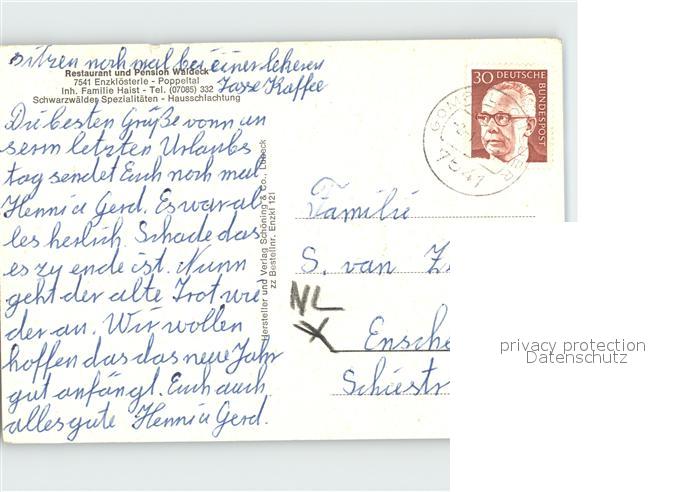 sitzen noch mal bei einer lekeren
Tasse Kaffee
Restaurant und Pension Waldeck
7541 Enzklösterle - Poppeltal
Inh. Familie Haist - Tel. (07085) 332
Schwarzwälder Spezialitäten - Hausschlachtung
Die besten Grüße vonn un
serm letzten Urlaubs
tag sendet Euch noch mal
Henni u Gerd. Es war al
les herlich. Schade das
es zu ende ist. Nunn
geht der alte Trot wie
der an. Wir wollen
hoffen das das neue Jahr
gut anfängt. Euch auch
alles gute Henni u Gerd.
Hersteller und Verlag Schöning & Co., Lübeck
zz Bestellnr. Enzkl 121
30 DEUTSCHE
BUNDESPOST
7541
Familie
S. van Z
NL
Ensche
Schiestr
privacy protection
Datenschutz